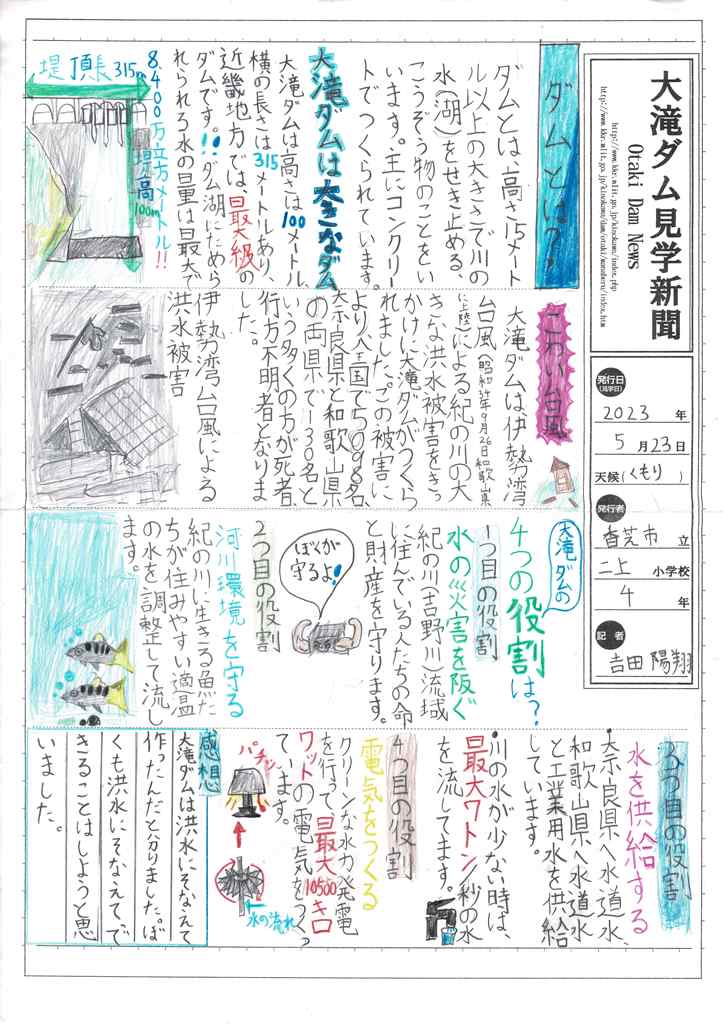 大滝ダム見学新聞
Otaki Dam News
http://www.kkr.mlit.go.jp/kinokawa/index.php
発行日
(見学日)
2023年
5月23日
天候(くもり)
発行者
香芝市立
二上小学校
4年
記者
吉田 陽翔
ダムとは?
ダムとは、高さ15メート
ル以上の大きさで川の
水(湖)をせき止める、
こうぞう物のことをい
います。主にコンクリー
トでつくられています。
大滝ダムは大きなダム
大滝ダムは高さは100メートル、
横の長さは315メートルあり、
近畿地方では、最大級の
ダムです。!!ダム湖にためら
れられる水の量は最大で
8.400万立方メートル!!
堤頂長315m
堤高100m
こわい台風
大滝ダムは伊勢湾
台風(昭和34年9月26日和歌山県
に上陸)による紀の川の大
きな洪水被害をきっ
かけに大滝ダムがつくら
れました。この被害に
より全国で5098名、
奈良県と和歌山県
の両県で130名と
いう多くの方が死者、
行方不明者となりま
した。
伊勢湾台風による
洪水被害
大滝ダムの
4つの役割は?
1つ目の役割
水の災害を防ぐ
紀の川(吉野川)流域
に住んでいる人たちの命
と財産を守ります。
ぼくが
守るよ!
2つ目の役割
河川環境を守る
紀の川に生きる魚た
ちが住みやすい適温
の水を調整して流し
ます。
3つ目の役割
水を供給する
・奈良県へ水道水、
和歌山県へ水道水
と工業用水を供給
しています。
・川の水が少ない時は、
最大7トン/秒の水
を流してます。
4つ目の役割
電気をつくる
クリーンな水力発電
を行って、最大10500キロ
ワットの電気をつくっ
ています。
パチン
水の流れ
感想
大滝ダムは洪水にそなえて
作ったんだと分りました。ぼ
くも洪水にそなえてで
きることはしようと思
いました。